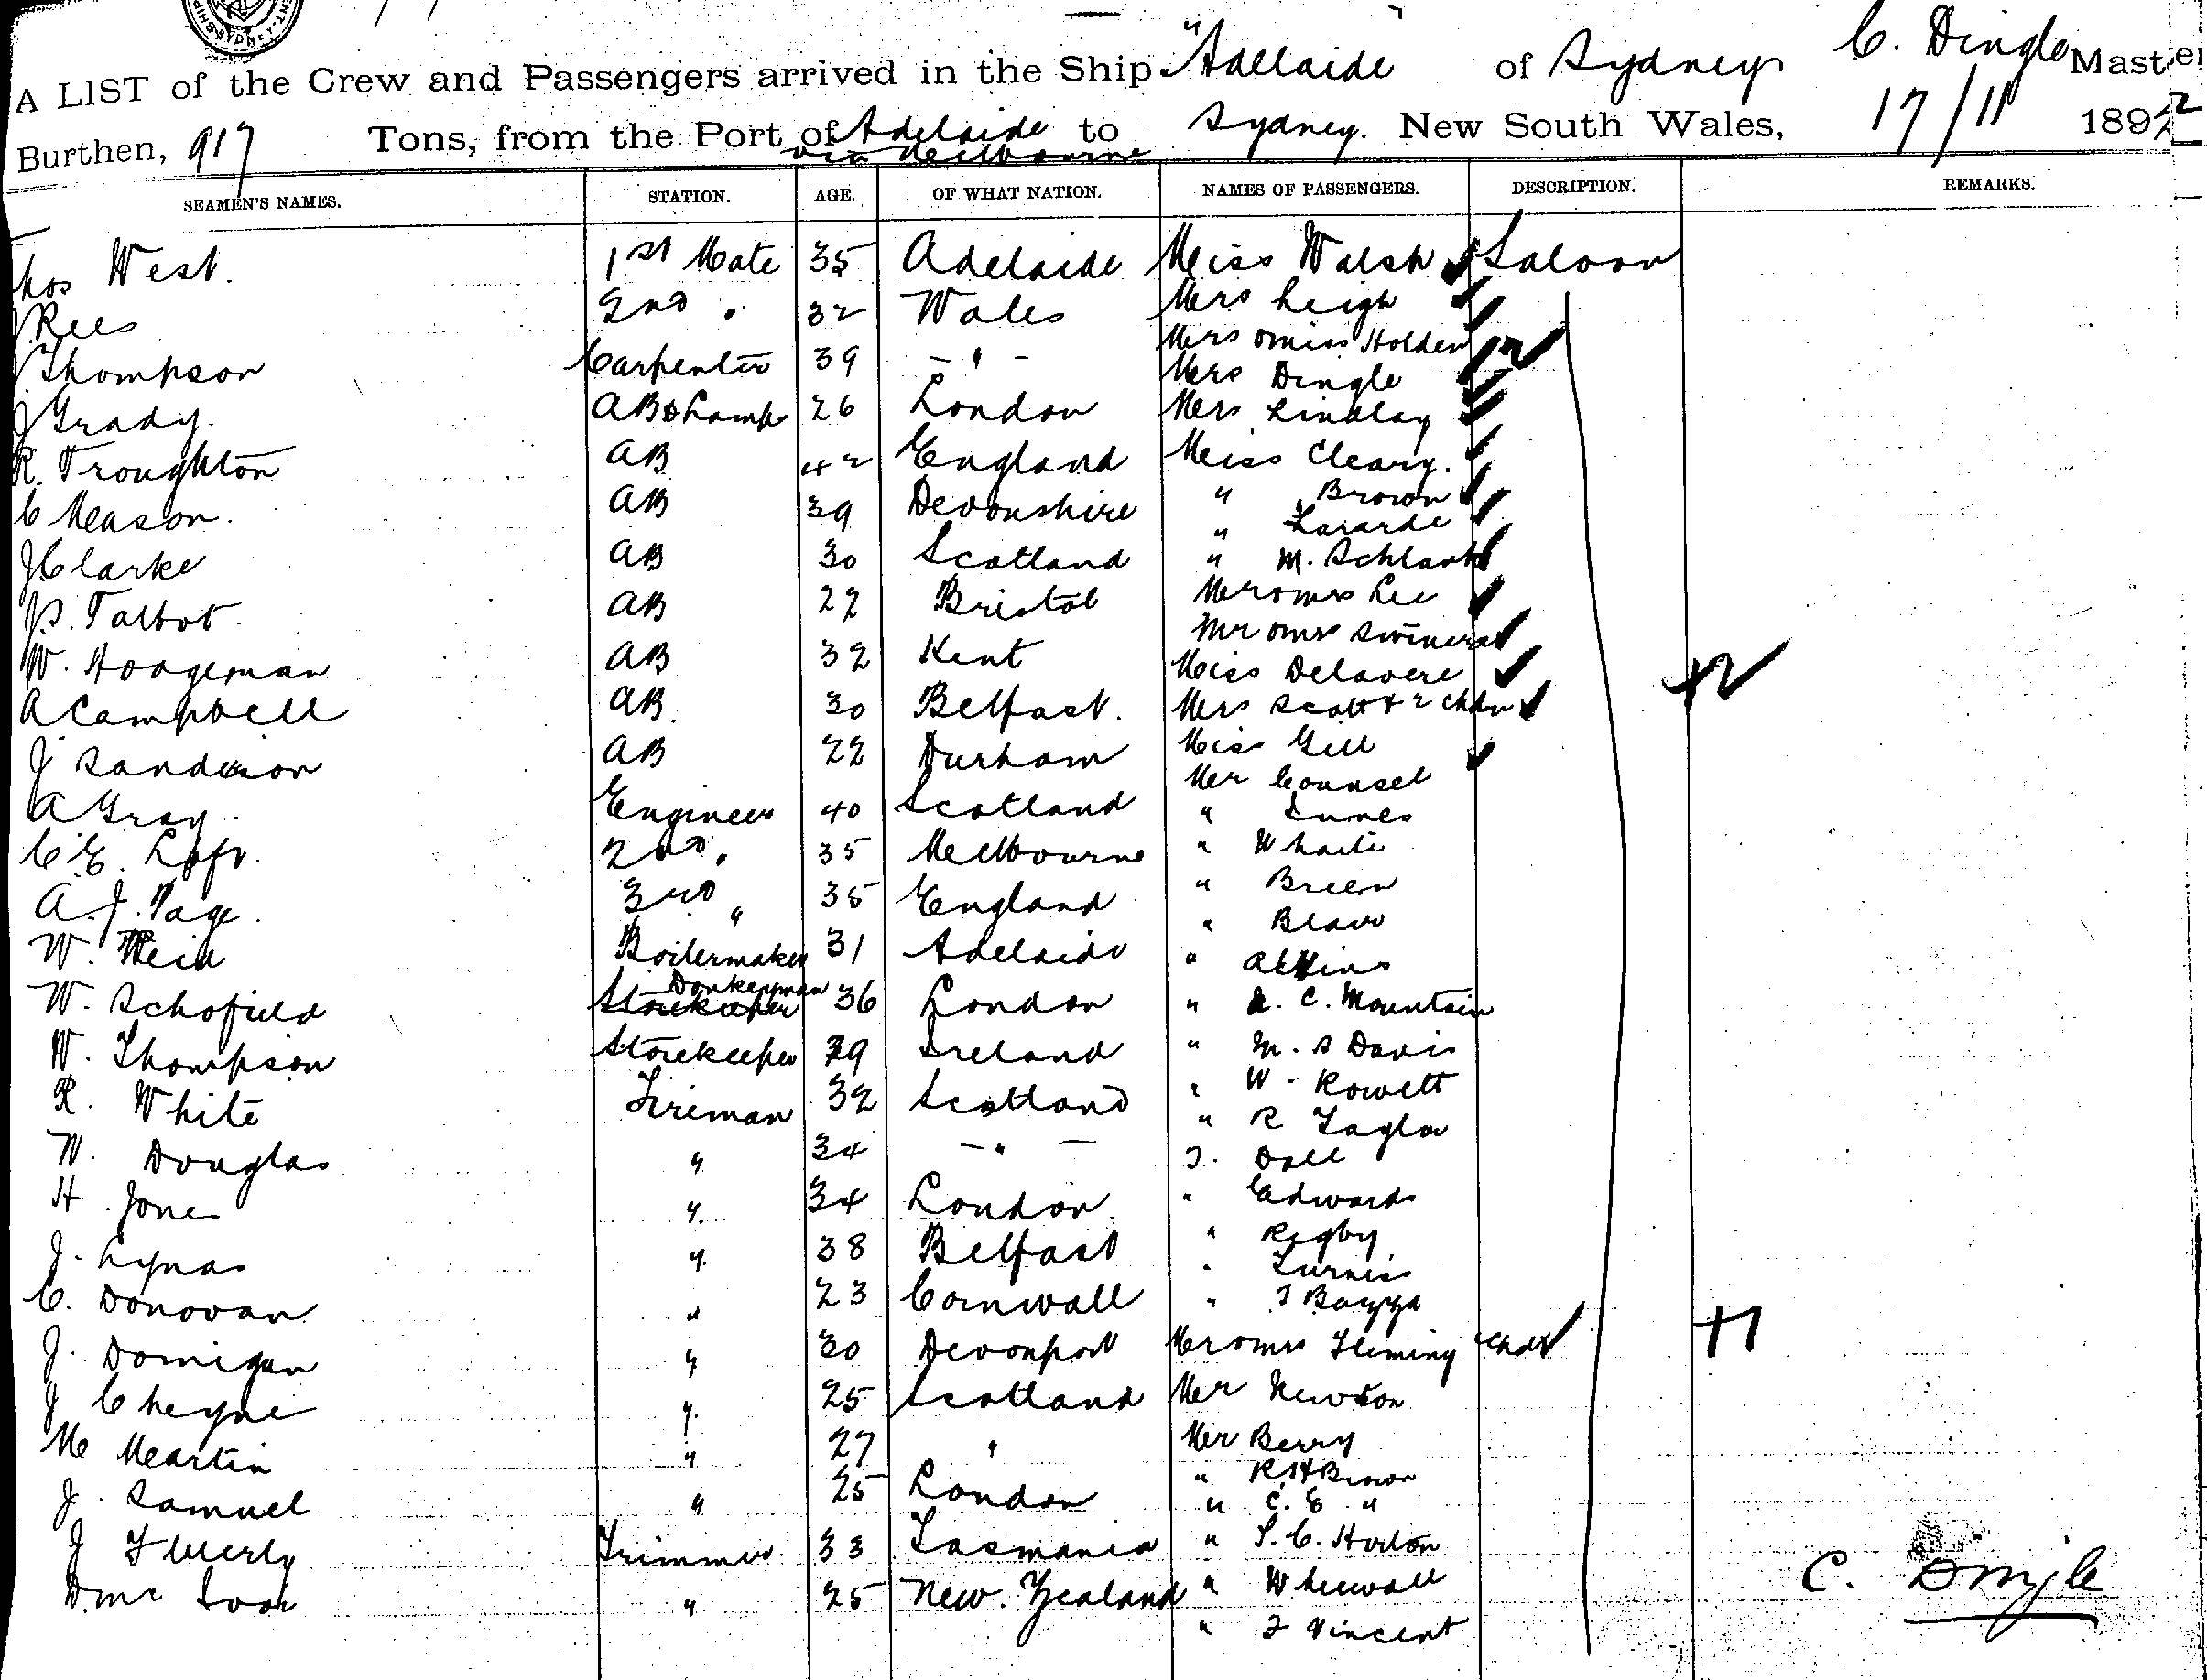 SYDNEY
A LIST of the Crew and Passengers arrived in the Ship "Adelaide" of Sydney C. Dingle Master
Burthen, 917 Tons, from the Port of Adelaide to Sydney. New South Wales, 17/11 1892
via Melbourne
SEAMEN'S NAMES. STATION. AGE. OF WHAT NATION. NAMES OF PASSENGERS. DESCRIPTION. REMARKS.
hos West. 1st Mate 35 Adelaide Miss Walsh Saloon
J Rees 2nd " 32 Wales Mrs Leigh
Mrs & Miss Holden
Thompson Carpenter 39 - " - Mrs Dingle
J Grady. AB & Lamps 26 London Mrs Lindlay
R. Troughton AB 42 England Miss Cleary.
C Meason. AB 39 Devonshire " Brown
"
J Clarke AB 30 Scotland " M. Schlank
J.S. Talbot. AB 22 Bristol Mr & Mrs Lee
Mr & Mrs
W. Hodgeman AB 32 Kent Miss Delavere
A Campbell AB. 30 Belfast. Mrs Scott + 2 chdn
J Sanderson AB 22 Durham Miss Gill
Mr Counsel
A Gray. Engineer 40 Scotland " Innes
C.E. Loft. 2nd " 35 Melbourne "
A.J. Page. 3rd " 35 England " Breen
"
W. Reid Boilermaker 31 Adelaide "
W. Schofield Storekeeper Donkeyman 36 London " C. Mountain
W. Thompson Storekeeper 39 Ireland " M. S Davis
R. White Fireman 32 Scotland " W. Rowett
" R Taylor
W. Douglas " 34 - " -
H. Jones " 34 London " Edwards
" Rigby
J. Lynas " 38 Belfast "
C. Donovan " 23 Cornwall "
J. Domigan " 30 Devonport Mr & Mrs Fleming + chdn
J Cheyne " 25 Scotland Mr Newton
M Meartin " 27 " Mr Berry
" R.H Brown
J. Samuel " 25 London " C. E "
J Trimmer. 33 Tasmania " S. C. Horton
D. Mc " 25 New. Zealand " Whewall
" F Vincent
C. Dingle